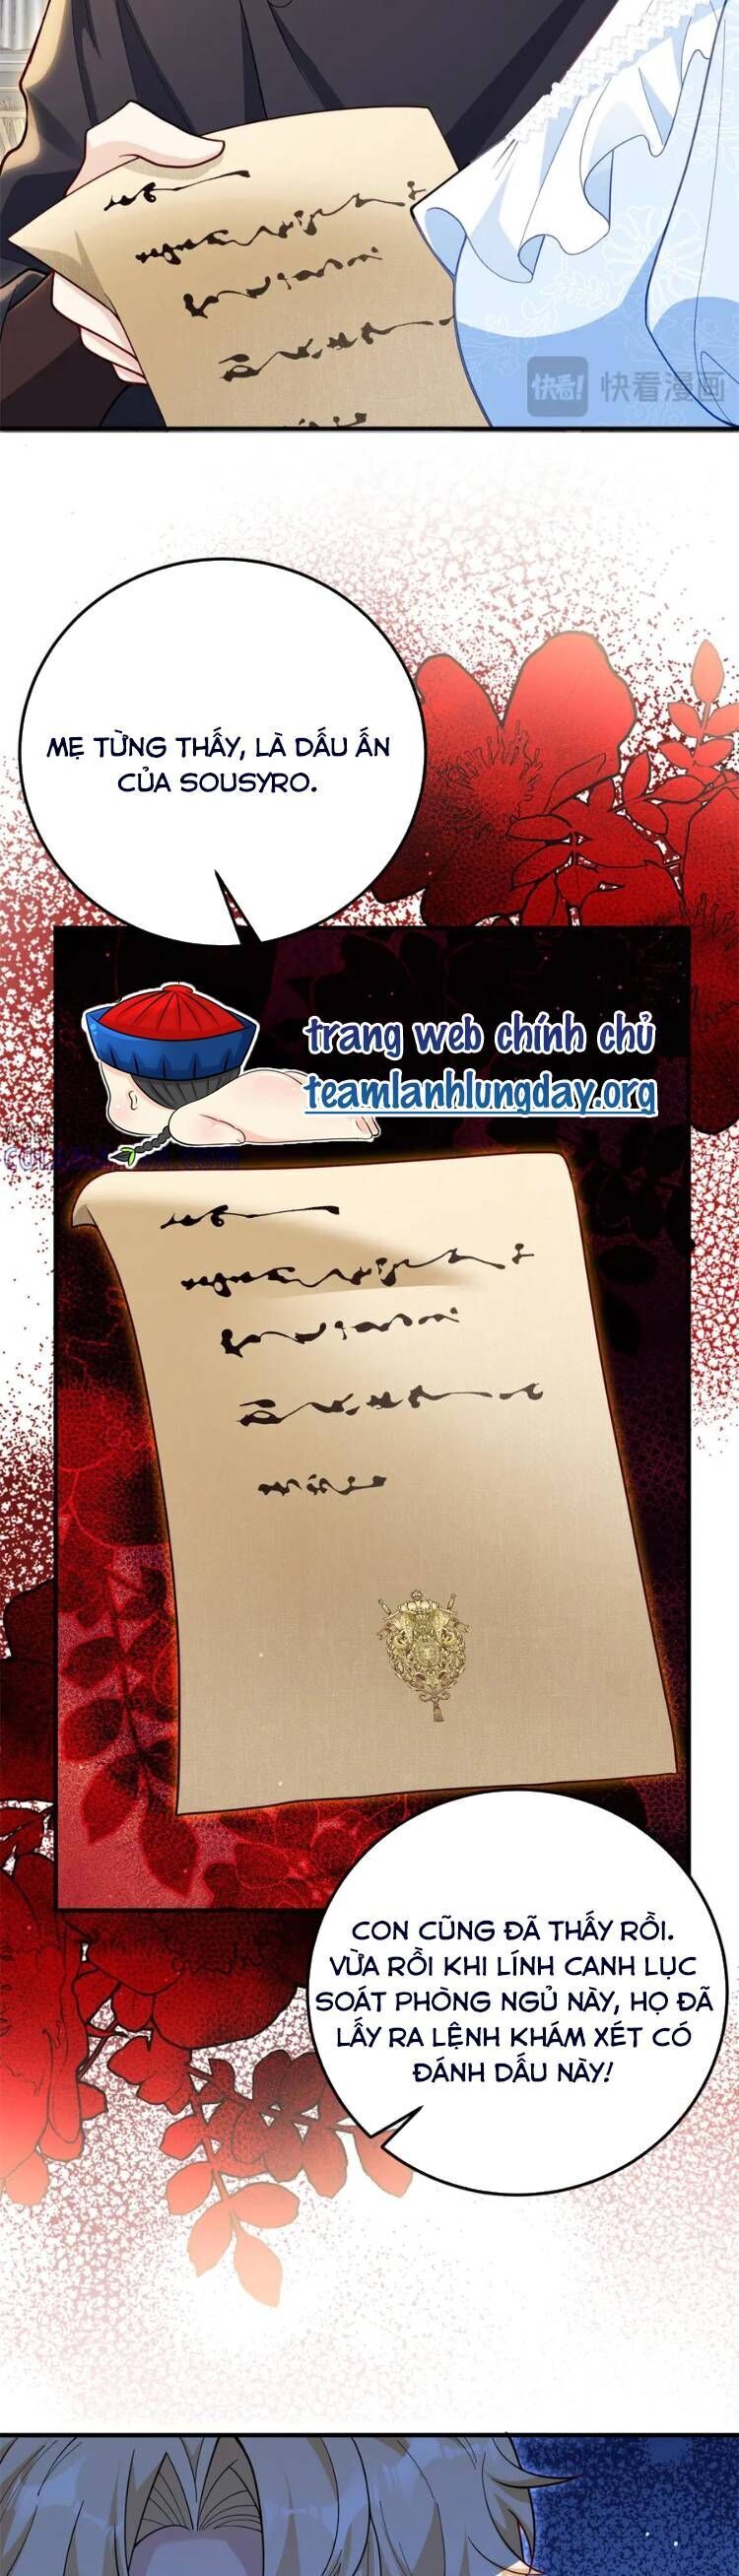 快看! 快看漫画
MẸ TỪNG THẤY, LÀ DẤU ẤN
CỦA SOUSYRO.
trang web chính chủ
teamlanhlungday.org
CON CŨNG ĐÃ THẤY RỒI.
VỪA RỒI KHI LÍNH CANH LỤC
SOÁT PHÒNG NGỦ NÀY, HỌ ĐÃ
LẤY RA LỆNH KHÁM XÉT CÓ
ĐÁNH DẤU NÀY!